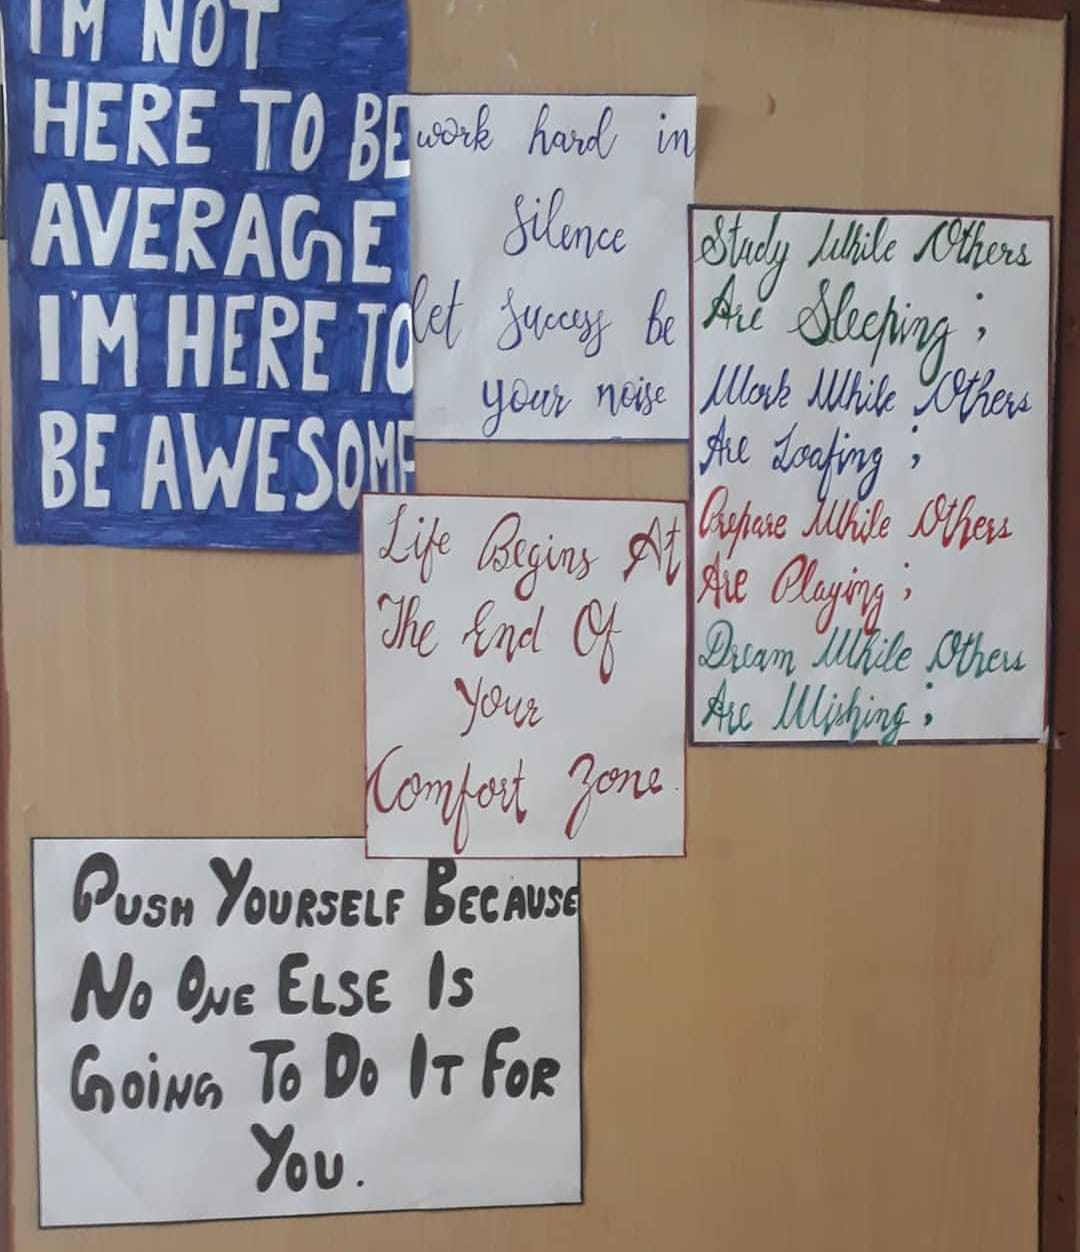 I'M NOT
HERE TO BE
AVERAGE
I'M HERE TO
BE AWESOME
work hard in
silence
let success be
your noise
Study While Others
Are Sleeping ;
Work While Others
Are Loafing ;
Prepare While Others
Are Playing ;
Dream While Others
Are Wishing ;
Life Begins At
The End Of
Your
Comfort Zone.
PUSH YOURSELF BECAUSE
NO ONE ELSE IS
GOING TO DO IT FOR
YOU.